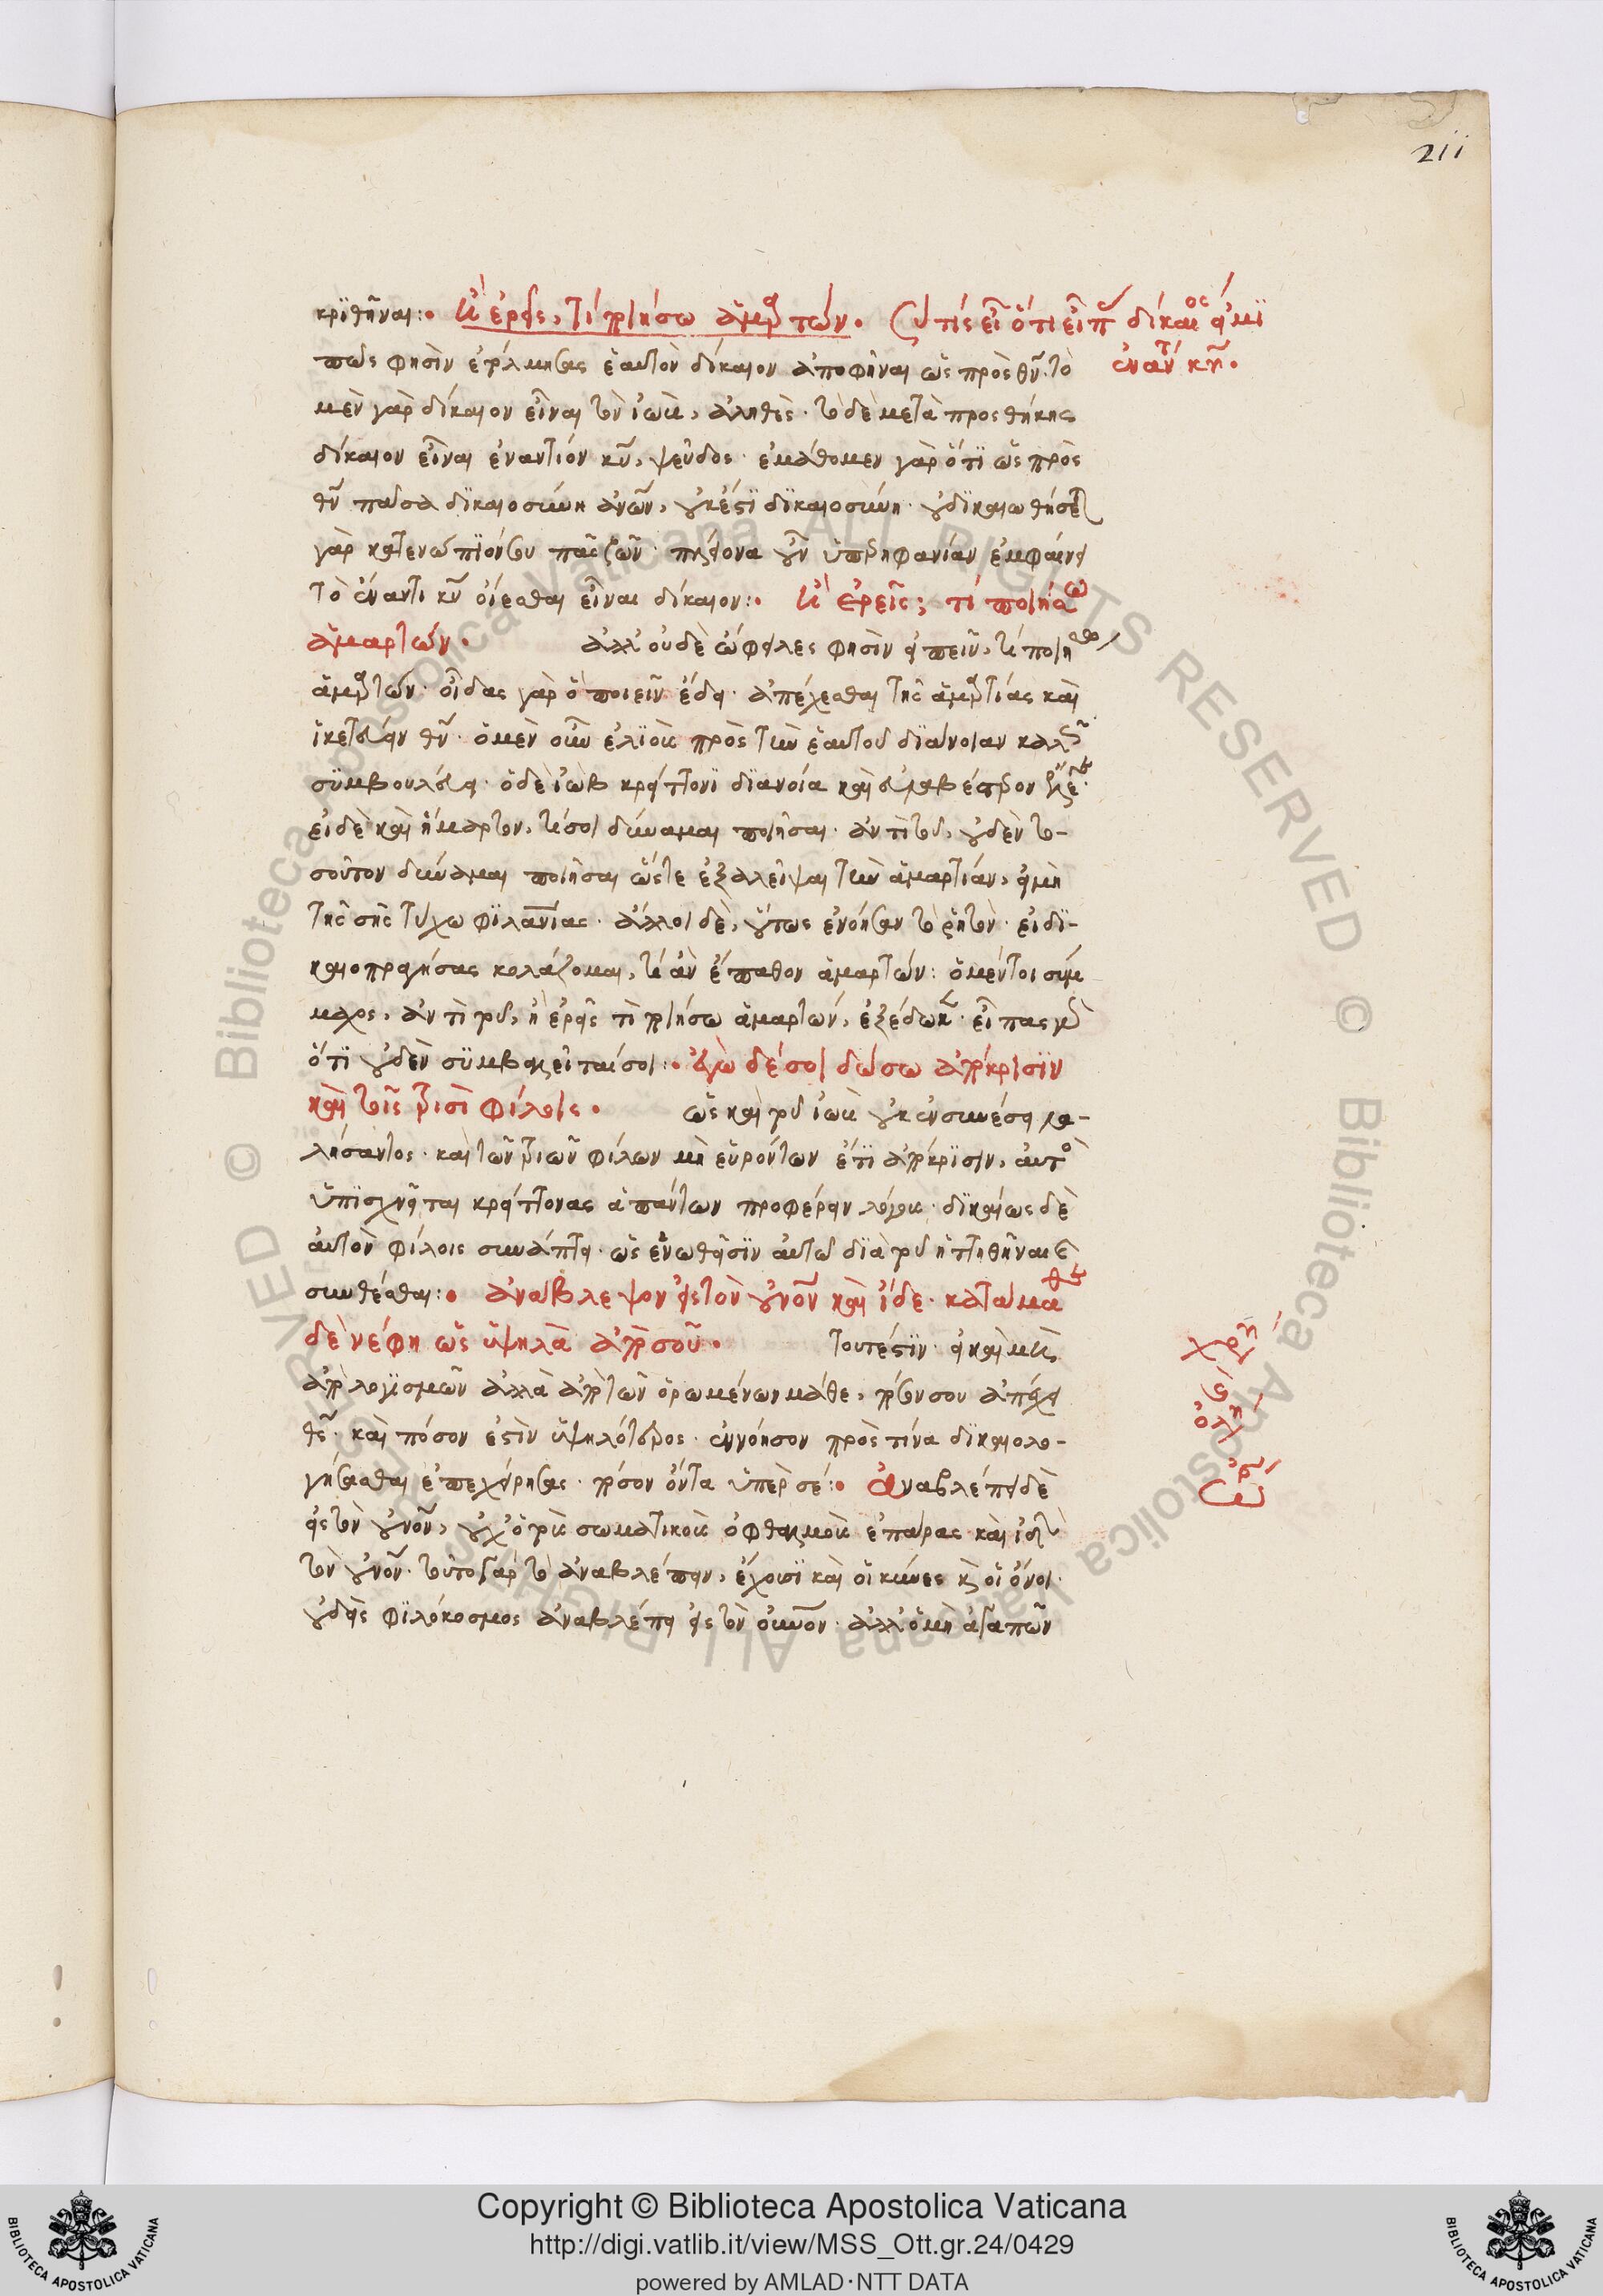 211
κριθῆναι:· ἢ ἐρεῖς, τί ποιήσω ἁμαρτών. σὺ τίς εἶ ὅτι εἶπας δίκαιός εἰμι
πῶς φησὶν ἐτόλμησας ἑαυτὸν δίκαιον ἀποφῆναι ὡς πρὸς θν̄. τὸ ἔναντι κῡ.
μὲν γὰρ δίκαιον εἶναι τὸν ἰὼβ, ἀληθὲς· τὸ δὲ μετὰ προσθήκης
δίκαιον εἶναι ἐναντίον κῡ, ψεῦδος· ἐμάθομεν γὰρ ὅτι ὡς πρὸς
θν̄ πᾶσα δικαιοσύνη ἀνων̄, οὐκ ἔστι δικαιοσύνη· οὐ δικαιωθήσεται
γὰρ κατενώπιόν σου πᾶς ζῶν· πλείονα οὖν ὑπερηφανίαν ἐμφαίνει
τὸ ἔναντι κῡ οἴεσθαι εἶναι δίκαιον:· ἢ ἐρεῖς; τί ποιήσω
ἁμαρτών. ἀλλ' οὐδὲ ὤφειλες φησὶν εἰπεῖν, τί ποιήσω
ἁμαρτών· οἶδας γὰρ ὃ ποιεῖν ἔδει· ἀπέχεσθαι τῆς ἁμαρτίας καὶ
ἱκετεύειν θν̄· ὁ μὲν οὖν ἐλιοὺς πρὸς τὴν ἑαυτοῦ διάνοιαν καλῶς
συμβουλεύει· ὁ δὲ ἰὼβ κρείττονι διανοία καὶ εὐλαβέστερον
εἰ δὲ καὶ ἥμαρτον, τί σοι δύναμαι ποιῆσαι· ἀντὶ τοῦ, οὐδὲν το-
σοῦτον δύναμαι ποιῆσαι ὥστε ἐξαλεῖψαι τὴν ἁμαρτίαν, εἰ μὴ
τῆς σῆς τύχω φιλανίας· ἄλλοι δὲ, οὕτως ἐνόησαν τὸ ῥητὸν· εἰ δι-
καιοπραγήσας κολάζομαι, τί ἂν ἔπαθον ἁμαρτών: ὁ μέντοι σύμ
μαχος, ἀντὶ τοῦ, ἢ ἐρεῖς τί ποιήσω ἁμαρτών, ἐξέδωκεν· εἶπας γὰρ
ὅτι οὐδὲν συμβαλεῖται σοι:· ἐγὼ δέ σοι δώσω ἀπόκρισιν
καὶ τοῖς τρισὶ φίλοις. ὡς καὶ τοῦ ἰὼβ οὐκ ἐν συνέσει λα-
λήσαντος· καὶ τῶν τριῶν φίλων μὴ εὑρόντων ἔτι ἀπόκρισιν, αὐτὸς
ὑπισχνεῖται κρείττονας ἁπάντων προφέρειν λόγους· δικαίως δὲ
αὐτὸν φίλοις συνάπτει· ὡς ἑνωθεῖσιν αὐτῶ διὰ τοῦ ἡττηθῆναι
συνθέσθαι:· ἀνάβλεψον εἰς τὸν οὐνον̄ καὶ ἴδε· κατάμαθε
δὲ νέφη ὡς ὑψηλὰ ἀπὸ σοῦ. τουτέστιν· εἰ καὶ μὴ
ἀπὸ λογισμῶν ἀλλὰ ἀπὸ τῶν ὁρωμένων μάθε, πόσον σου ἀπέχει
θς̄· καὶ πόσον ἐστὶν ὑψηλότερος· ἐννόησον πρὸς τίνα δικαιολο-
γήσασθαι ἐπεχείρησας· πόσον ὄντα ὑπὲρ σέ:· ἀναβλέπει δὲ
εἰς τὸν οὐνον̄, οὐχ ὁ τοὺς σωματικοὺς ὀφθαλμοὺς ἐπάρας καὶ ἰδὼν
τὸν οὐνον̄· τοῦτο γὰρ τὸ ἀναβλέπειν, ἔχουσι καὶ οἱ κύνες καὶ οἱ ὄνοι·
οὐδεὶς φιλόκοσμος ἀναβλέπει εἰς τὸν οὐνον̄· ἀλλ' ὁ μὴ ἀγαπῶν
Copyright © Biblioteca Apostolica Vaticana
http://digi.vatlib.it/view/MSS_Ott.gr.24/0429
powered by AMLAD·NTT DATA
BIBLIOTECA APOSTOLICA VATICANA
BIBLIOTECA APOSTOLICA VATICANA
© Biblioteca Apostolica Vaticana ALL RIGHTS RESERVED © Biblioteca Apostolica Vaticana ALL RIGHTS RESERVED